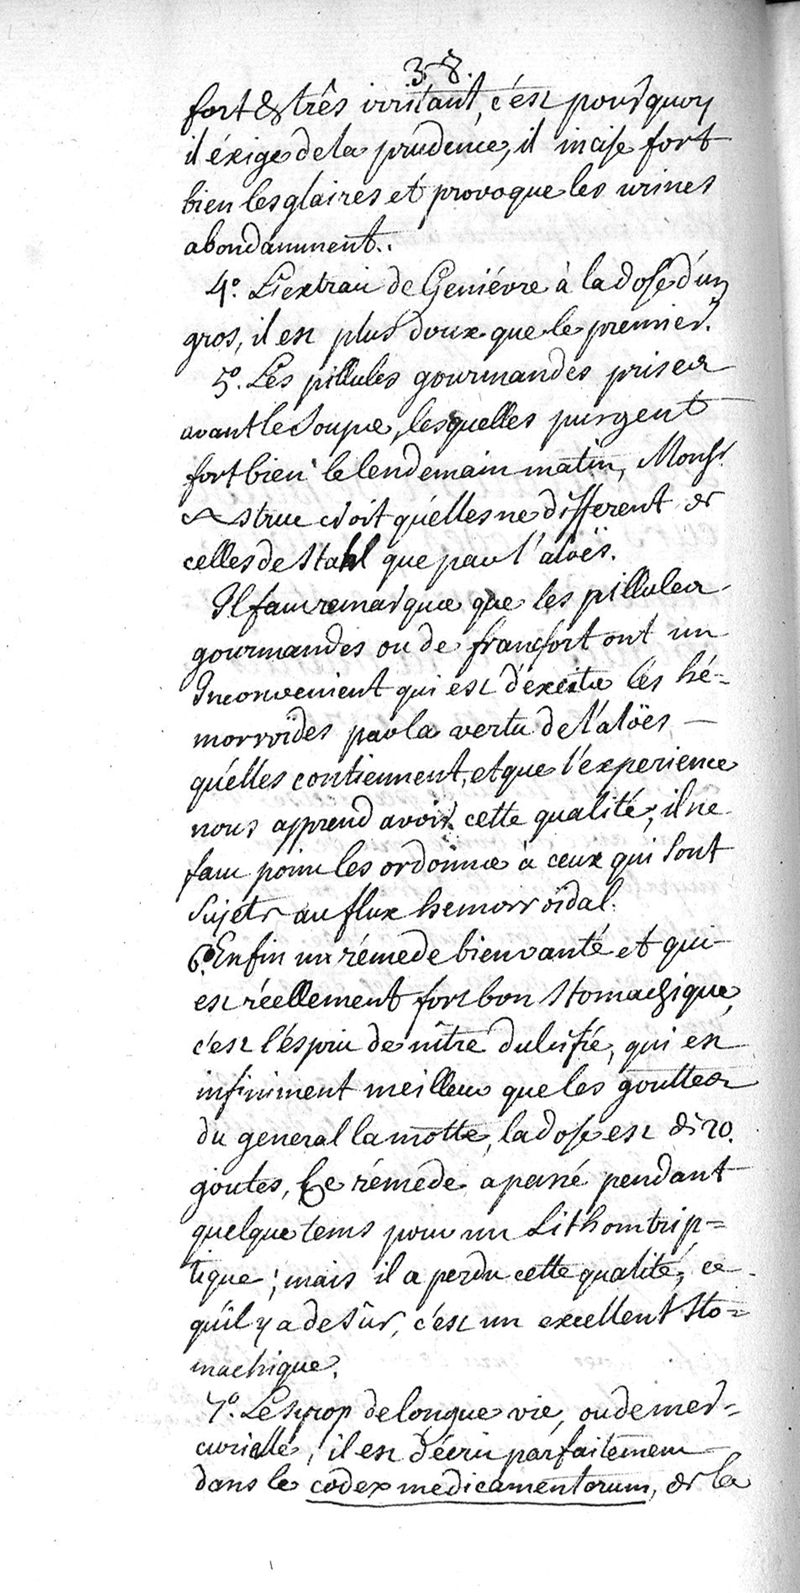 38.
fort & três irritant, c'est pourquoy
il éxige de la prudence, il incise fort
bien les glaires et provoque les urines
abondamment..
4.° L'extrait de Geniévre à la dose d'un
gros, il est plus doux que le premier.
5.° Les pillules gourmandes prises
avant le soupé, lesquelles purgent
fort bien le lendemain matin, Monsr.
Astruc croit qu'elles ne différent de
celles de Stahl que par l'aloës.
Il faut remarquer que les pillules
gourmandes ou de francfort ont un
Inconvenient qui est d'éxciter les hé=
morroïdes par la vertu de l'aloës
qu'elles contiennent, et que l'experience
nous apprend avoir cette qualité; il ne
faut point les ordonner à ceux qui sont
sujets au flux hemorroïdal.
6.° Enfin un rémede bien vanté et qui
est réellement fort bon stomachique,
c'est l'ésprit de nître dulcifié, qui est
infiniment meilleur que les gouttes
du general la motte, la dose est de 20.
goutes, Ce rémede a passé pendant
quelque tems pour un Lithontrip=
tique; mais il a perdu cette qualité, ce
qu'il y a de sûr, c'est un excellent sto=
machique.
7.° Le syrop de longue vie, ou de mer=
curielle, il est décrit parfaitement
dans le codex medicamentorum, de la